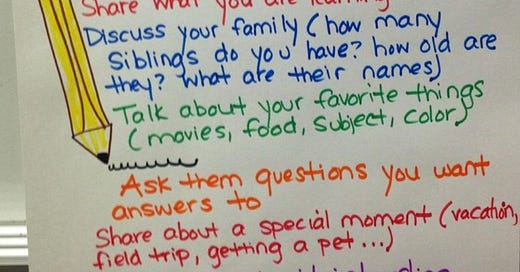 Share what you are
Discuss your family (how many
siblings do you have? how old are
they? what are their names)
Talk about your favorite things
(movies, food, subject, color)
Ask them questions you want
answers to
Share about a special moment (vacation,
field trip, getting a pet...)